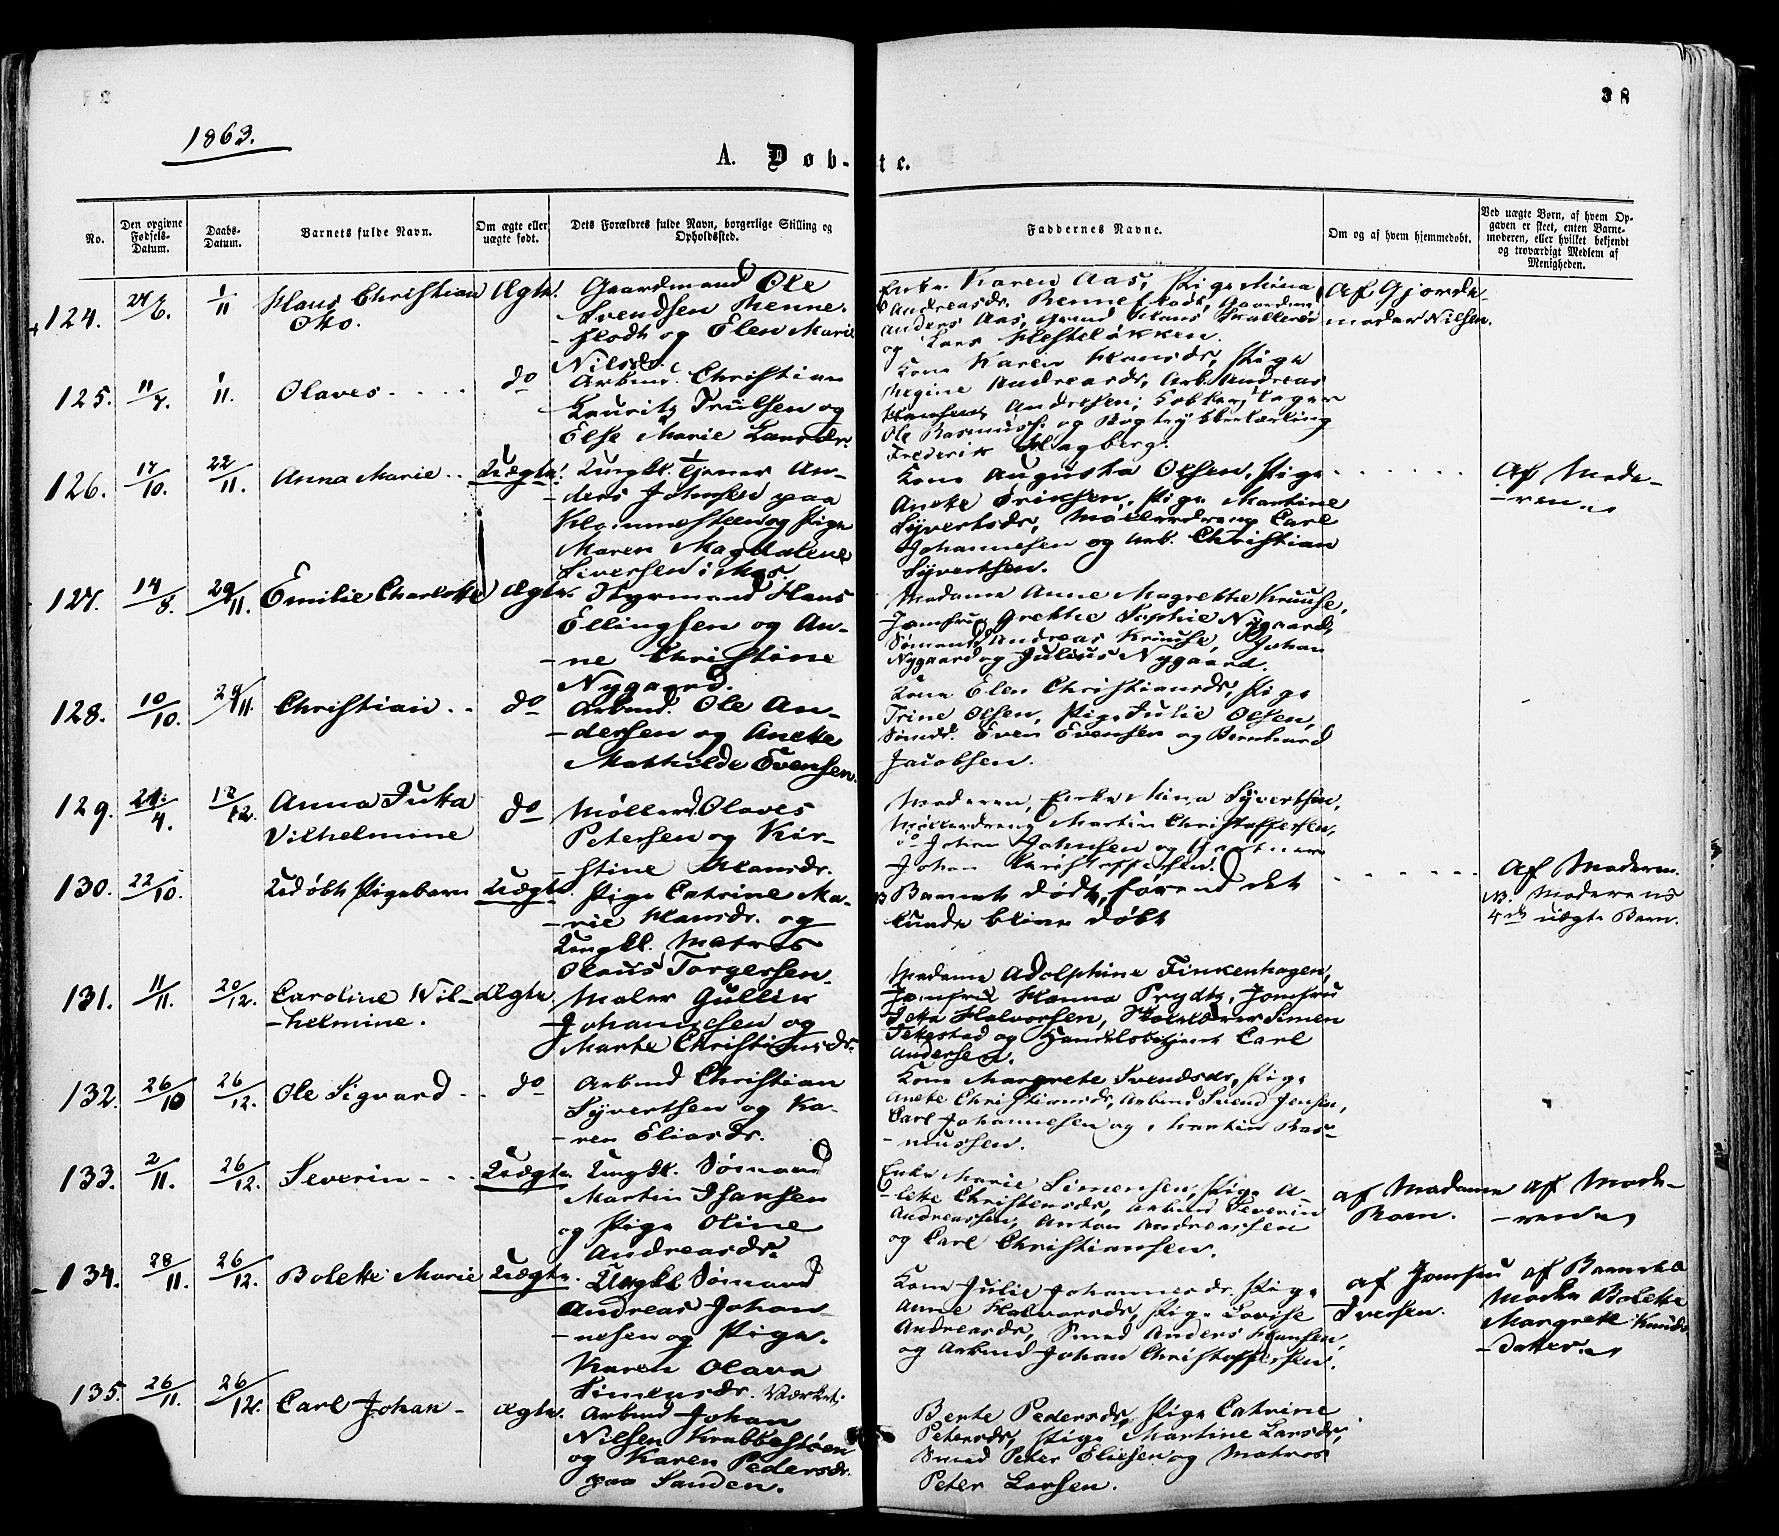 38
1863.
A. Døb-
te.
No.
Den opgivne
Fødsels-
Datum.
Daabs-
Datum.
Barnets fulde Navn.
Om ægte eller
uægte født.
Dets Forældres fulde Navn, borgerlige Stilling og
Opholdssted.
Faddernes Navne.
Om og af hvem hjemmedøbt.
Ved uægte Børn, af hvem Op-
gaven er skeet, enten Barne-
moderen, eller hvilket bekjendt
og troværdigt Medlem af
Menigheden.
124.
1/11
Hans Christian
Otto.
Ægte.
Gaardmand Ole
Svendsen Henne-
og Elen Marie
Nilsd.
Enke Karen Aas, Pige Mina
Andreasdr. Gaardm.
Anders Aas, Hans
og Lars Hesteløkken.
Af Gjorde-
moder Nilsen.
125.
11/7.
1/11.
Olaves - . . .
do
Arbmd. Christian
Lauritz Truilsen og
Else Marie Larsdr.
Kone Karen Hansdr, Pige
Regine Andreasdr, Arb. Andreas
Andersen,
Ole Rasmuss. og Bogtrykkerlærling
Frederik Hagberg.
126.
17/10.
22/11.
Anna Marie . .
Uægte.
Ungkl. An-
-ders Johnsen paa
Klommesteen og Pige
Maren Magdalene
Siversen i Mos.
Kone Augusta Olsen, Pige
Anette Eriksen, Pige Martine
Syvertsdr, Møllerdreng Carl
Johannesen og Arb. Christian
Syvertsen.
Af Mode-
-ren.
127.
14/8.
29/11.
Emilie Charlotte
Ægte.
Styrmand Hans
Ellingsen og An-
-ne Christine
Nygaard.
Madame Anne Magrethe Kruuse,
Jomfru Grethe Sophie Nygaard,
Sømand Andreas Kruuse, Johan
Nygaard og Julius Nygaard.
128.
10/10.
29/11.
Christian . .
do
Arbmd. Ole An-
-dersen og Anette
Mathilde Evensen.
Kone Elen Christiansdr, Pige
Trine Olsen, Pige Julie Olsen,
Sømd. Even Evensen og Bernhard
Jacobsen.
129.
Anna Jutta
Vilhelmine
do
Møller Olaves
Petersen og Kir-
-stine Hansdr.
Moderen, Enke Mina Syvertsen,
Møllerdreng Martin Christoffersen,
do Johan Johnsen og
Johan Christoffersen.
130.
22/10.
Udøbt Pigebarn
Uægte.
Pige Catrine Ma-
-rie Hansdr. og
Ungkl. Matros
Olaus Torgersen.
Barnet døde, førend det
kunde blive døbt
Af Moderen.
NB. Moderens
4de uægte Barn.
131.
11/11.
20/12.
Caroline Wil-
-helmine.
Ægte.
Maler Gullik
Johannesen og
Marte Christiansdr.
Madame Adolphine Finkenhagen,
Jomfru Hanna Prydtz, Jomfru
Halvorsen, Skolelærer Simen
og Handelsbetjent Carl
Andersen.
132.
26/10
26/12.
Ole Sigvard - .
do
Arbmd Christian
Syvertsen og Ka-
-ren Eliasdr.
Kone Margrete Svendsdr, Pige
Anette Christiansdr, Arbmd Svend Jensen,
Carl Johannesen og Martin Ras-
-mussen.
133.
2/11.
26/12.
Severin - . .
Uægte
Ungkl. Sømand
Martin Isaksen
og Pige Oline
Andreasdr.
Enke Marie Simensen, Pige A-
-lette Christensdr, Arbmd Severin
Andreassen, Anton Andreassen
og Carl Christiansen.
af Madame
Rom.
af Mode-
-ren
134.
28/11.
26/12.
Bolette Marie
Uægte.
Ungkl. Sømand
Andreas Johan-
-nesen og Pige
Karen Olava
Simensdr. Værket.
Kone Julie Johannesdr. Pige
Anne Halvorsdr, Pige Lovise
Andreasdr, Smed Anders Hansen
og Arbmd Johan Christoffersen.
af Jomfru
Iversen.
af Barnets
Bolette
Margrete Knuds-
-datter.
135.
26/11.
26/12.
Carl Johan -
Ægte.
Arbmd Johan
Nilsen Krabbestøen
og Karen Pedersdr.
paa Sanden.
Bente Pedersdr, Pige Catrine
Petersdr, Pige Martine Larsdr,
Smed Peter Eliesen og Matros
Peter Larsen.